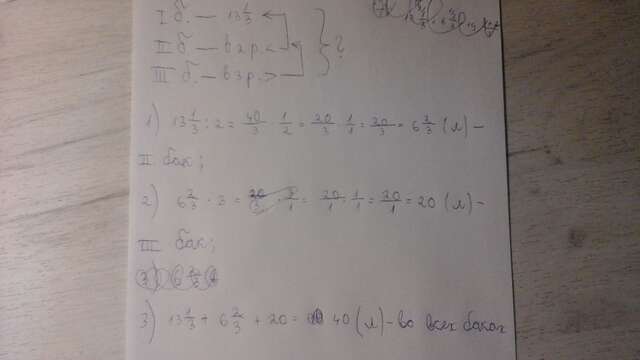 I б. — 13 1/3
II б — в 2 р. <
III б. — в 3 р. >
?
1) 13 1/3 : 2 = 40/3 · 1/2 = 20/3 · 1/1 = 20/3 = 6 2/3 (л) —
II бак;
2) 6 2/3 · 3 = 20/3 · 3/1 = 20/1 · 1/1 = 20/1 = 20 (л) —
III бак;
3) 13 1/3 + 6 2/3 + 20 = 40 (л) — во всех баках